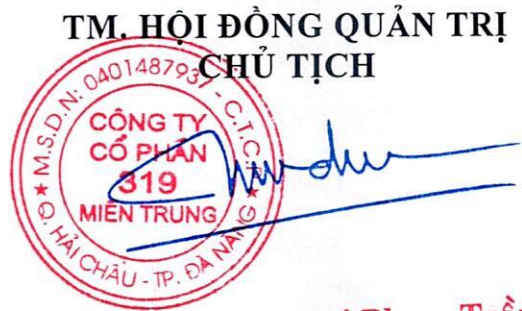 TM. HỘI ĐỒNG QUẢN TRỊ
CHỦ TỊCH
★ M.S.D.N: 0401487937 - C.T.C.P ★
CÔNG TY
CỔ PHẦN
319
MIỀN TRUNG
Q. HẢI CHÂU - TP. ĐÀ NẴNG